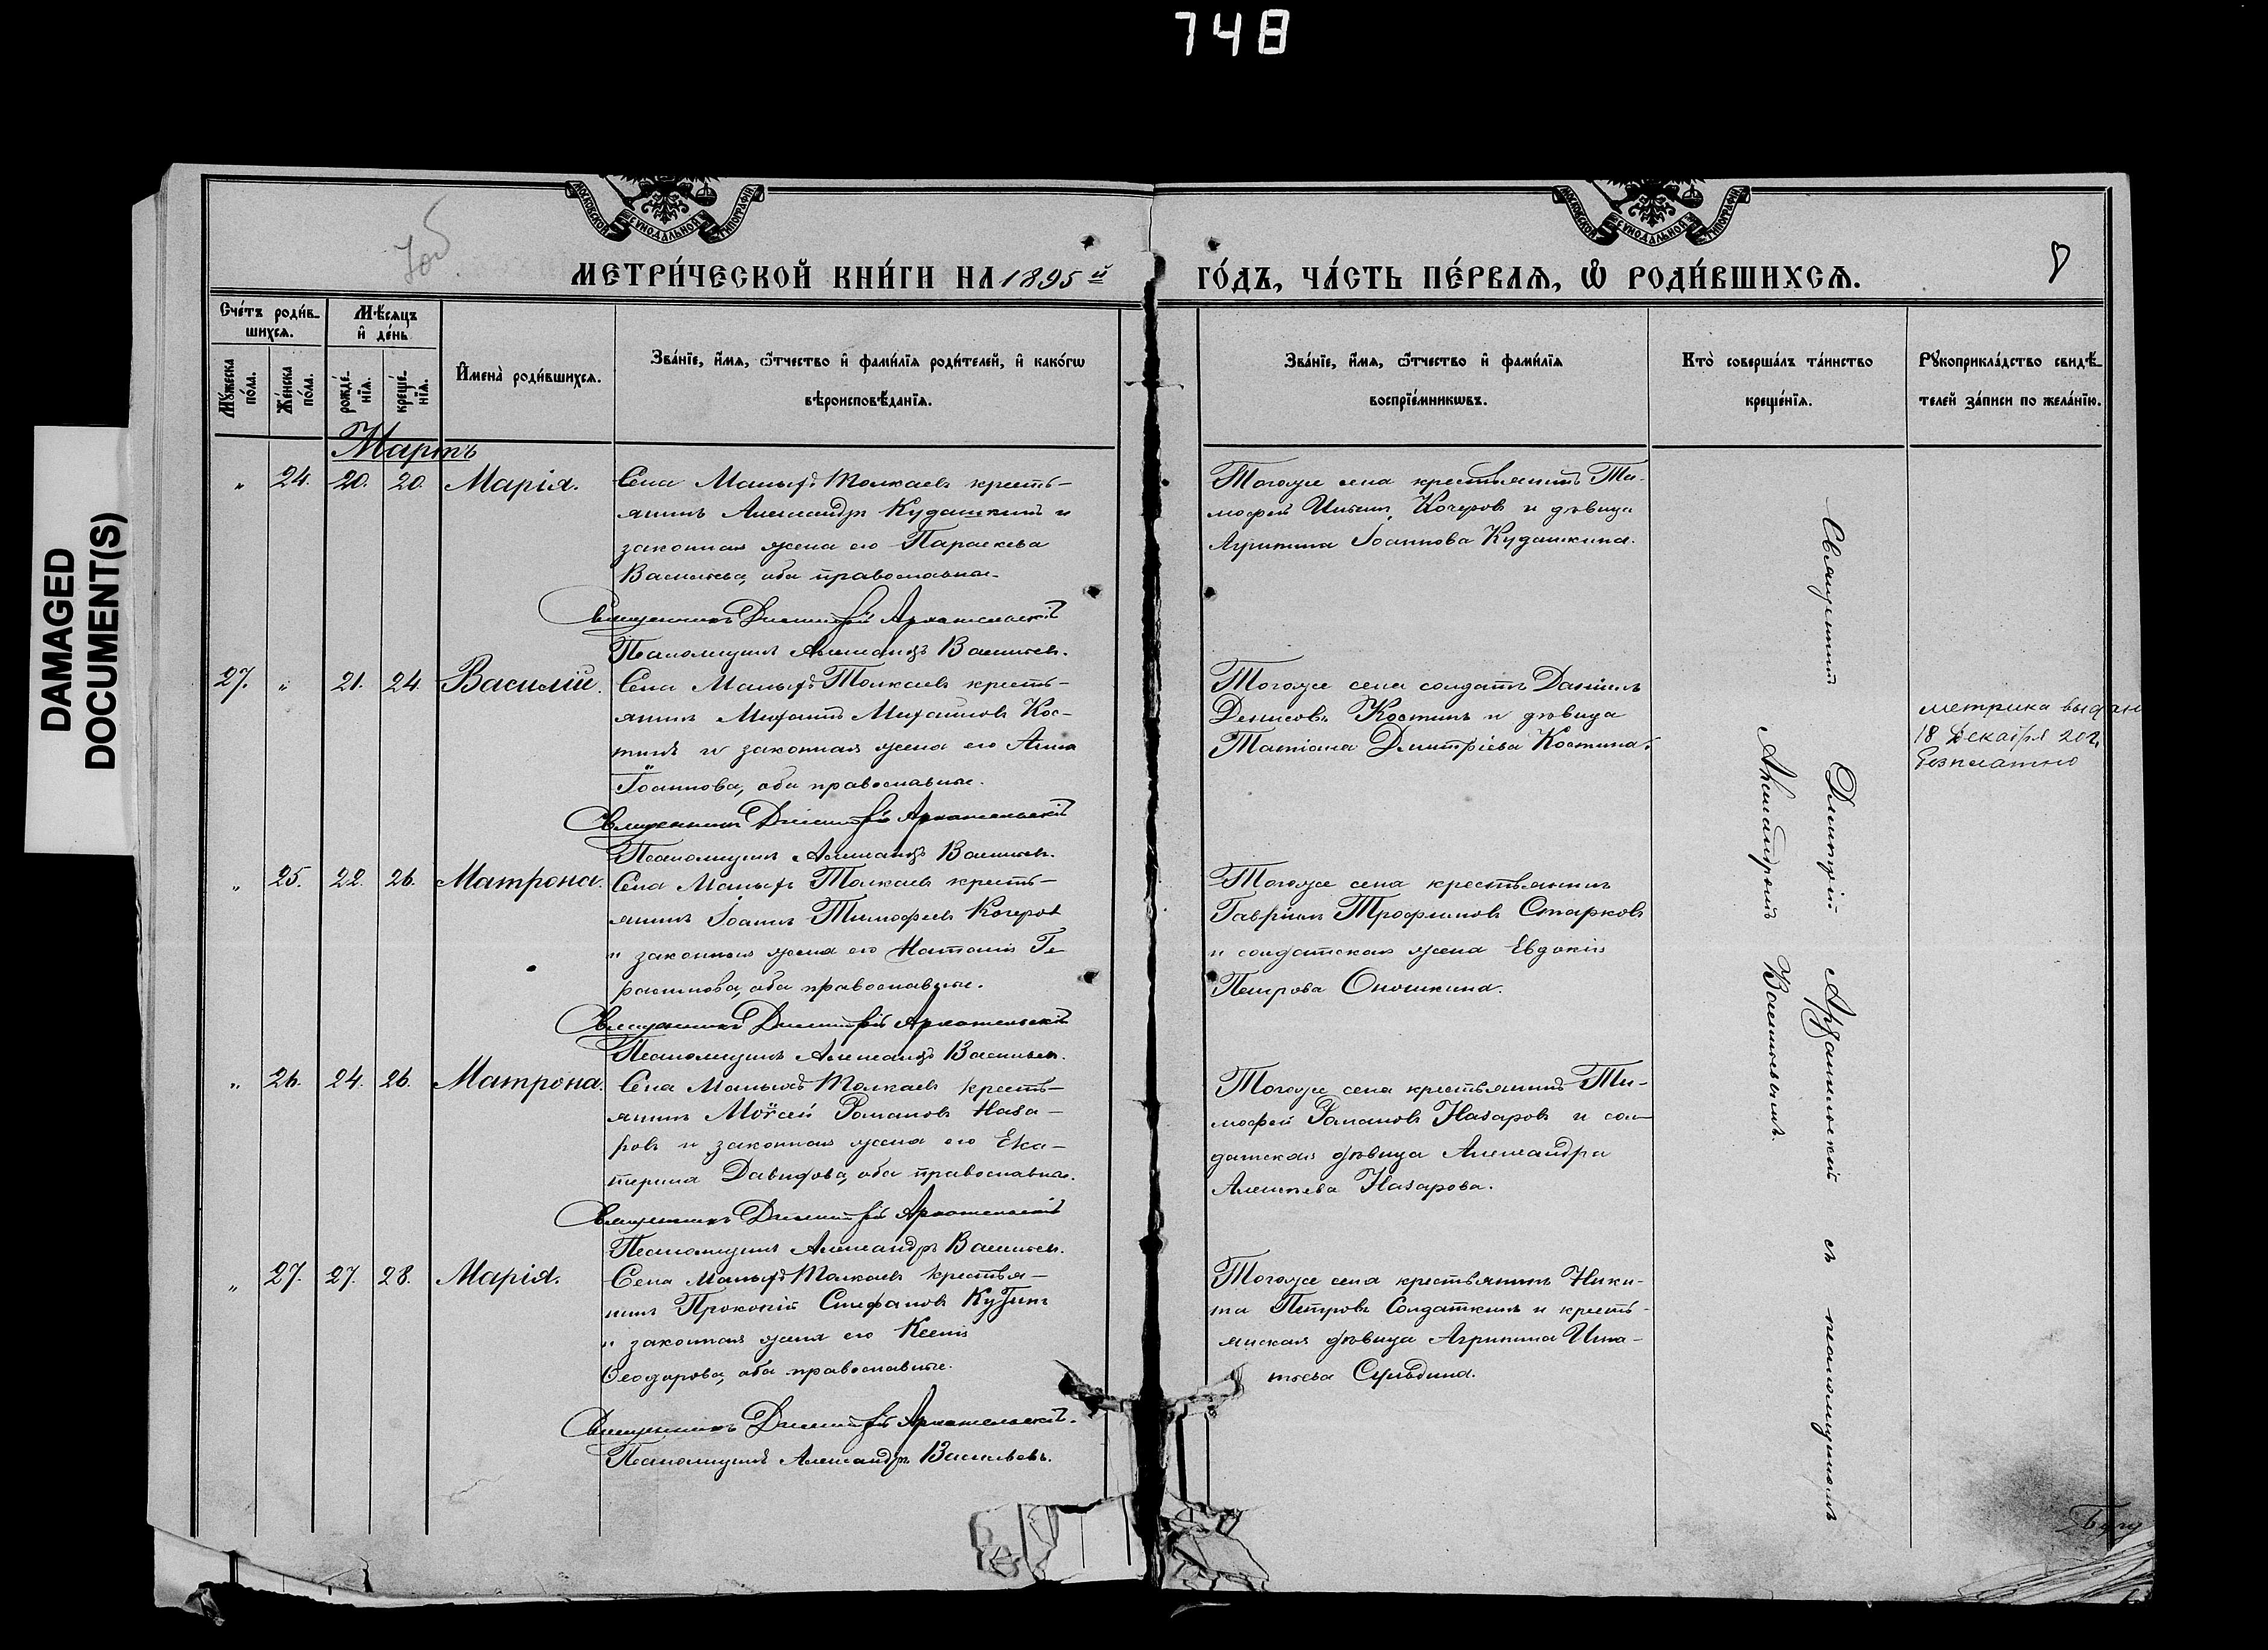 748
DAMAGED
DOCUMENT(S)
МОСКОВСКОЙ СУНОДАЛЬНОЙ ТИПОГРАФІИ
МОСКОВСКОЙ СУНОДАЛЬНОЙ ТИПОГРАФІИ
МЕТРИ́ЧЕСКОЙ КНИ́ГИ НА 1895й
ГО́ДЪ, ЧА́СТЬ ПЕ́РВАЯ, Ѡ҆ РОДИ́ВШИХСЯ.
8
Сче́тъ роди́в-
шихся.
Мѣ́сяцъ
и҆ де́нь
Му́жеска
по́ла.
Же́нска
по́ла.
рожде́-
нїя.
креще́-
нїя.
И҆мена̀ роди́вшихся.
Зва́нїе, и҆́мя, ѻ҆́тчество и҆ фами́лїя роди́телей, и҆ како́гѡ
вѣроисповѣ́данїя.
Зва́нїе, и҆́мя, ѻ҆́тчество и҆ фами́лїя
воспрїе́мникѡвъ.
Кто̀ соверша́лъ та́инство
креще́нїя.
Рꙋкоприкла́дство свидѣ́-
телей за́писи по жела́нїю.
Мартъ
" 24. 20. 20. Марія.
Села Малыхъ Толкаевъ кресть-
янинъ Александръ Кудашкинъ и
законная жена его Параскева
Васильева, оба православные.
Священникъ Димитрій Архангельскій
Псаломщикъ Александръ Васильевъ.
Тогоже села крестьянинъ Ти-
мофей Кочеровъ и дѣвица
Агрипина Іоаннова Кудашкина.
27. " 21. 24. Василій.
Села Малыхъ Толкаевъ кресть-
янинъ Михаилъ Михаиловъ Кос-
тинъ и законная жена его Анна
Іоаннова, оба православные.
Священникъ Димитрій Архангельскій
Псаломщикъ Александръ Васильевъ.
Тогоже села солдатъ Даніилъ
Денисовъ Костинъ и дѣвица
Татіана Димитріева Костина.
метрика выдан
18 Декабря 20 г.
безплатно
" 25. 22. 26. Матрона.
Села Малыхъ Толкаевъ кресть-
янинъ Іоаннъ Тимофеевъ Кочеровъ
и законная жена его Наталія Ге-
расимова, оба православные.
Священникъ Димитрій Архангельскій
Псаломщикъ Александръ Васильевъ.
Тогоже села крестьянинъ
Гавріилъ Трофимовъ Старковъ
и солдатская жена Евдокія
Петрова Оношкина.
" 26. 24. 26. Матрона.
Села Малыхъ Толкаевъ кресть-
янинъ Моѷсей Романовъ Наза-
ровъ и законная жена его Ека-
терина Давидова, оба православные.
Священникъ Димитрій Архангельскій
Псаломщикъ Александръ Васильевъ.
Тогоже села крестьянинъ Ти-
мофей Романовъ Назаровъ и сол-
датская дѣвица Александра
Алексѣева Назарова.
" 27. 27. 28. Марія.
Села Малыхъ Толкаевъ крестья-
нинъ Прокопій Стефановъ
и законная жена его Ксенія
Ѳеодорова, оба православные.
Священникъ Димитрій Архангельскій.
Псаломщикъ Александръ Васильевъ.
Тогоже села крестьянинъ Ники-
та Петровъ Солдаткинъ и кресть-
янская дѣвица Агрипина Игна-
тьева Сульдина.
Священникъ Димитрій Архангельскій съ псаломщикомъ
Александромъ Васильевымъ.